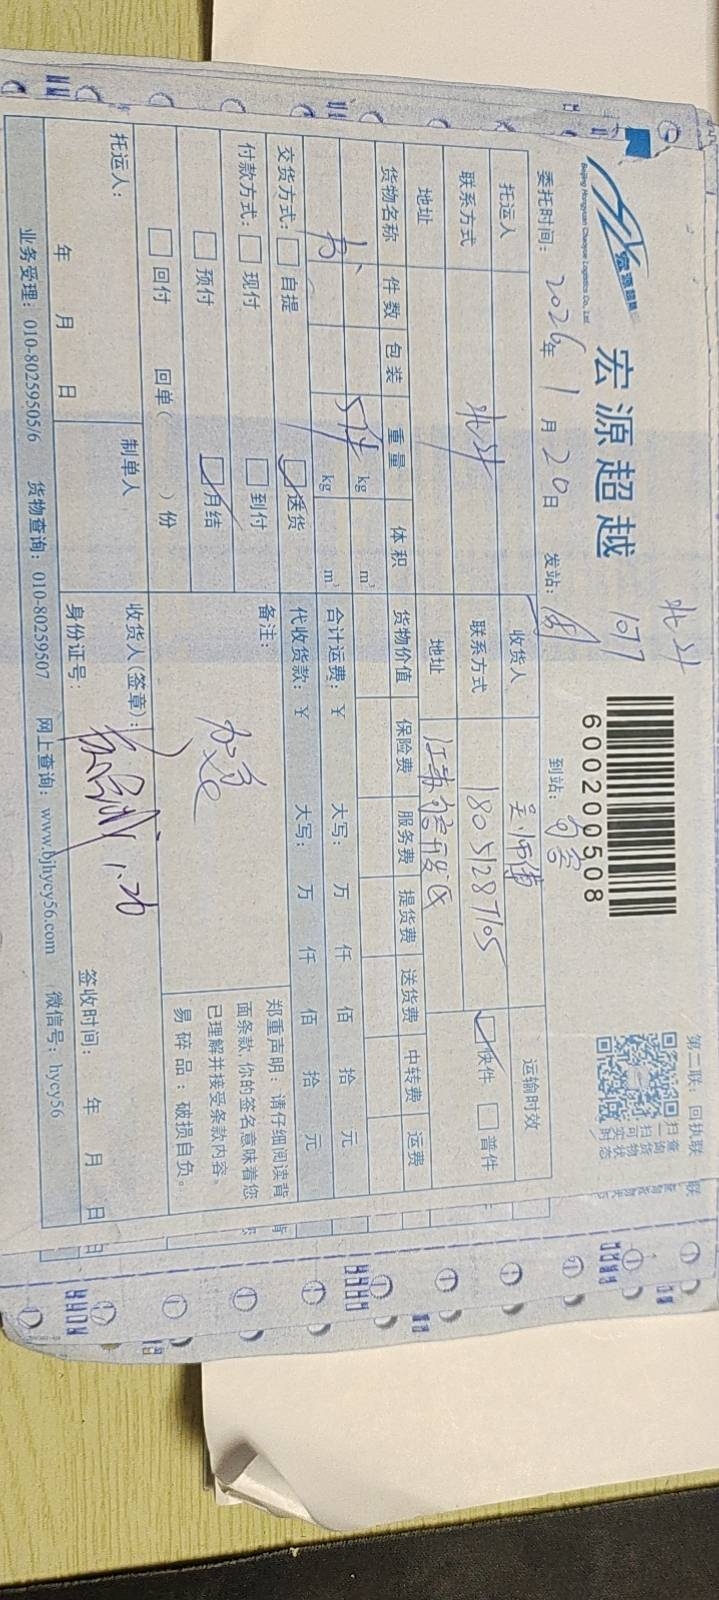 北斗
107
宏源超越
宏源超越
Beijing Hongyuan Chaoyue Logistics Co., Ltd.
600200508
第二联：回执联
扫查
一询
扫货
可物
实状
时态
委托时间： 2026年 1月 20日 发站： 到站：
托运人 北斗 收货人 吴师傅 运输时效
联系方式 联系方式 18051287105 快件 普件
地址 地址 江苏 开发区
货物名称 件数 包装 重量 体积 货物价值 保险费 服务费 提货费 送货费 中转费 运费
5件 kg m³
kg m³ 合计运费：￥ 大写： 万 仟 佰 拾 元
交货方式： 自提 送货 代收货款：￥ 大写： 万 仟 佰 拾 元
付款方式： 现付 到付 备注：
预付 月结
回付 回单（ ）份
郑重声明：请仔细阅读背
面条款，你的签名意味着您
已理解并接受条款内容。
易碎品：破损自负。
托运人： 制单人 收货人（签章）：
1.20
年 月 日 身份证号： 签收时间： 年 月 日
业务受理：010-80259505/6 货物查询：010-80259507 网上查询：www.bjhycy56.com 微信号：hycy56